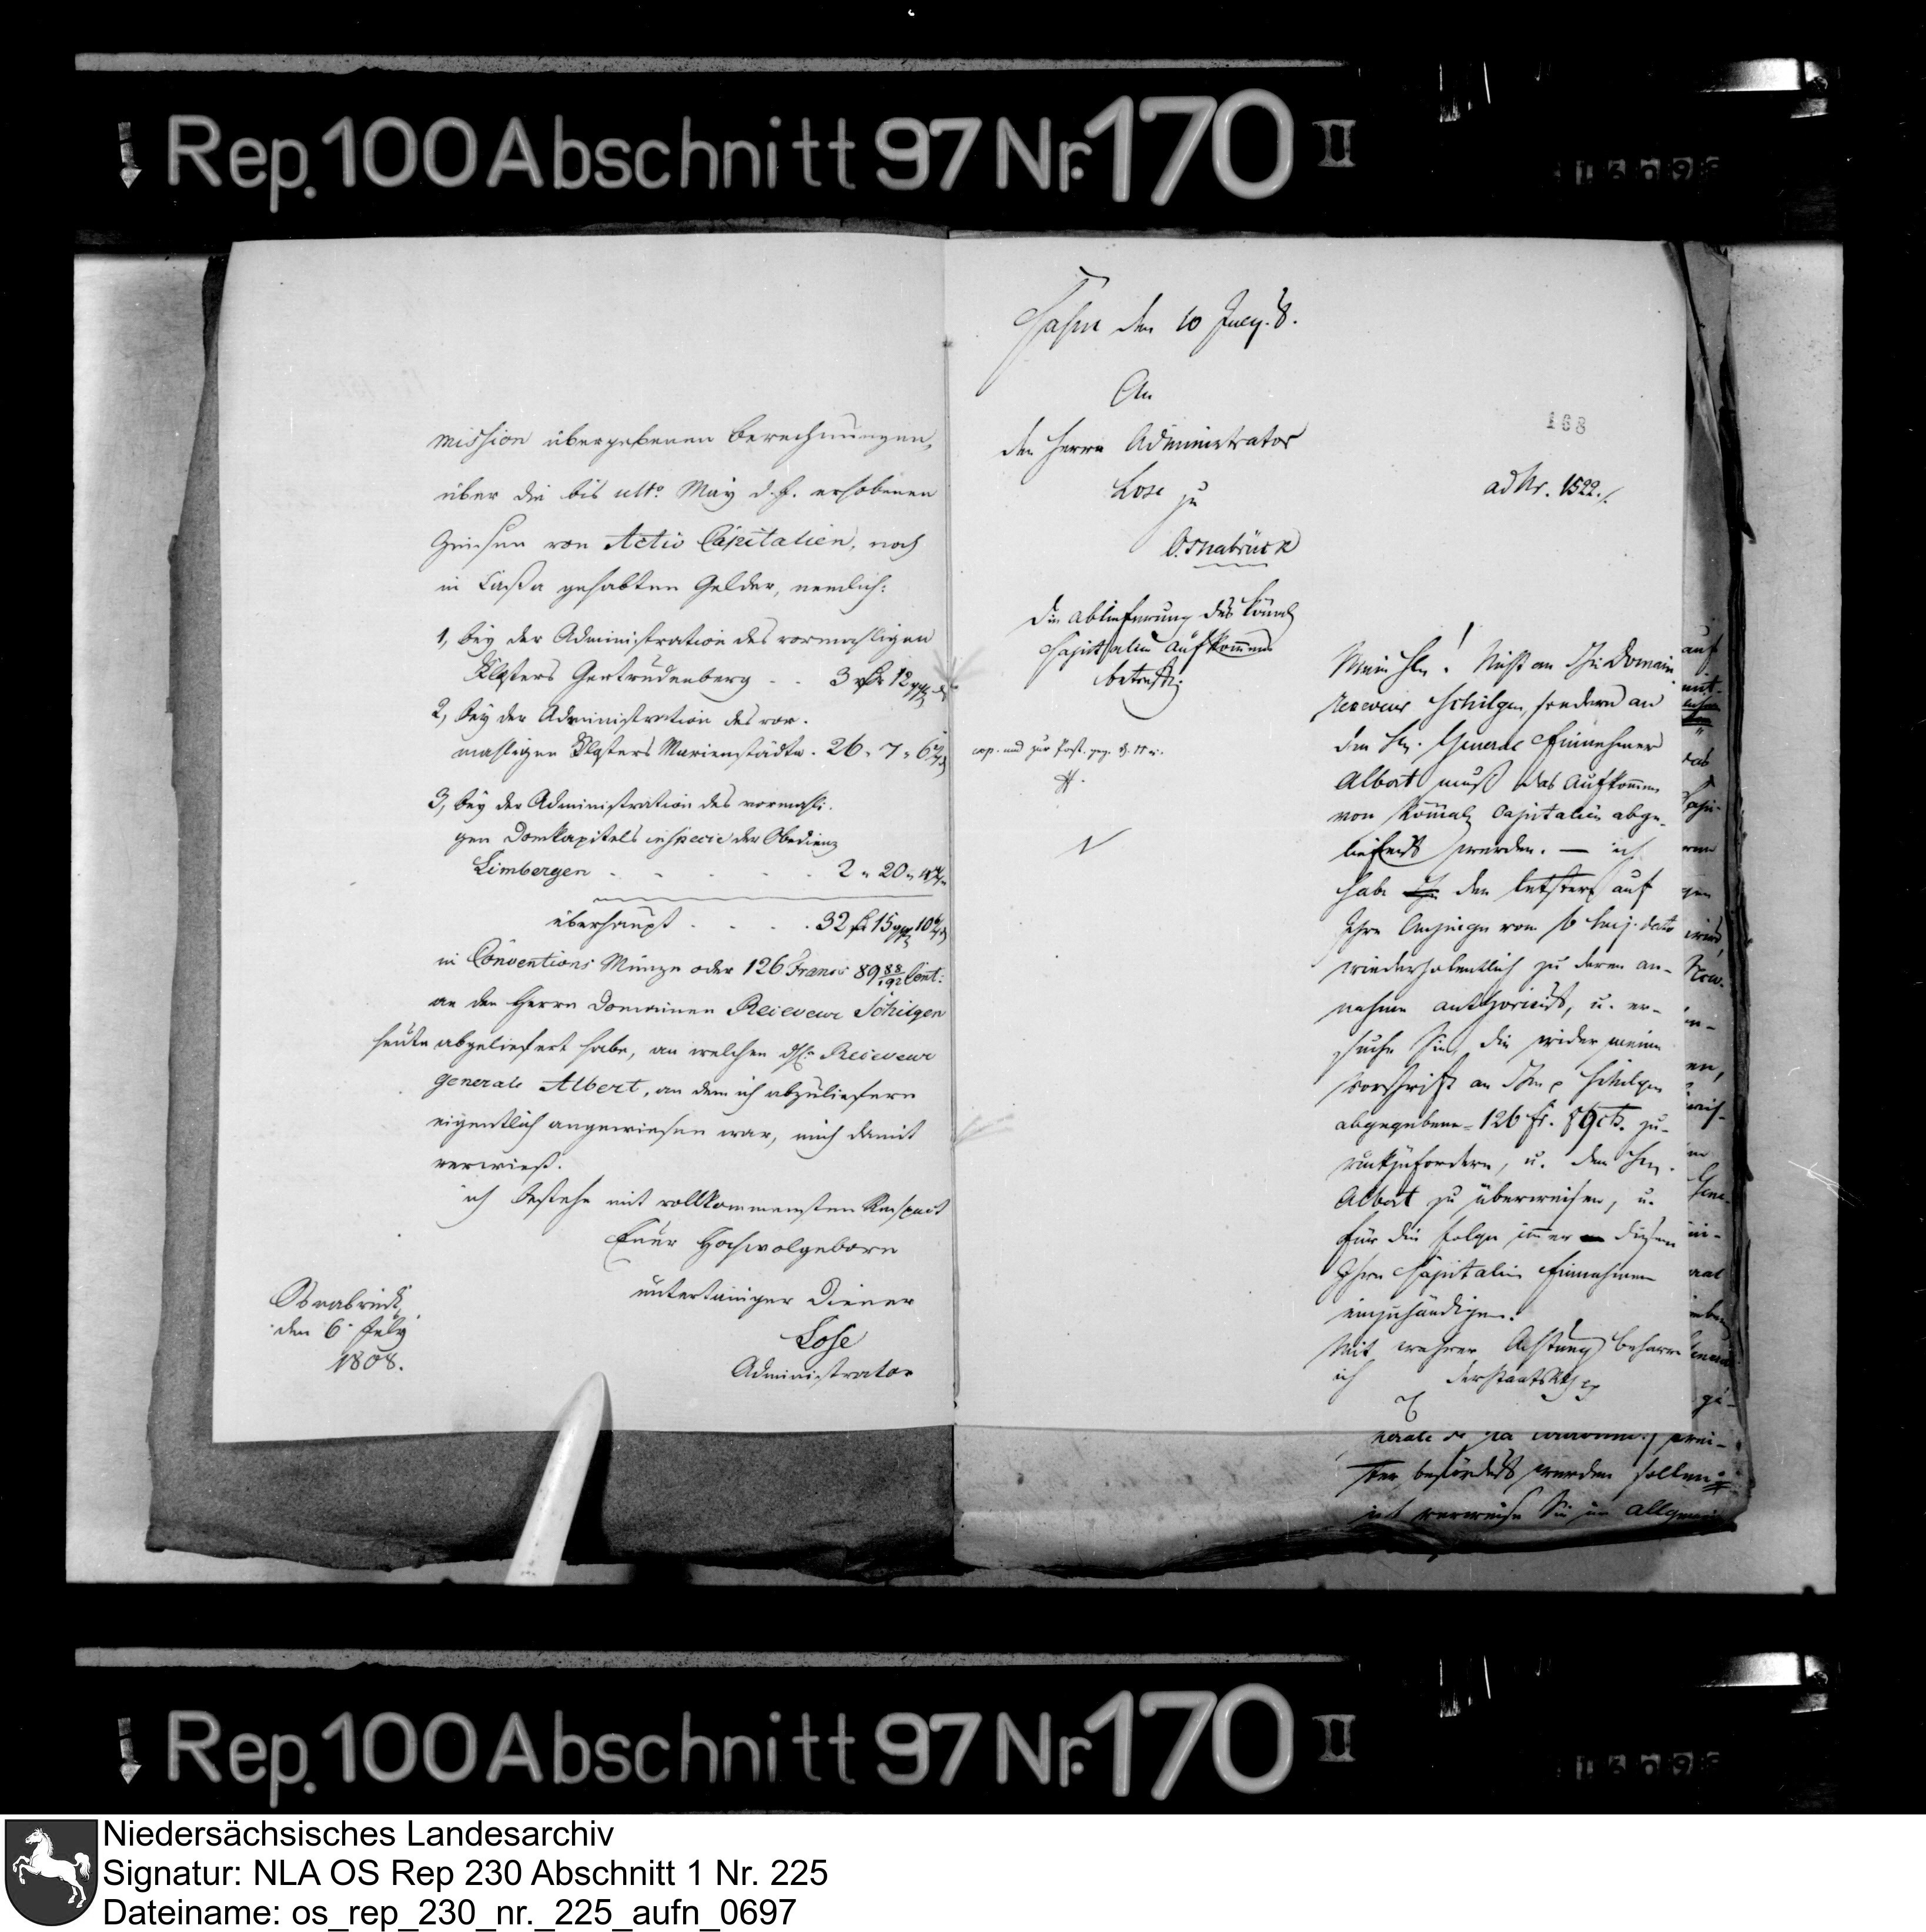 Rep. 100 Abschnitt 97 Nr. 170 II
mission übergebenen Berechnungen,
über die bis ult: May d. J. erhobenen
Zinsen von Activ Capitalien, noch
in Cassa gehabten Gelder, nemlich:
1, bey der Administration des vormahligen
Klosters Gertrudenberg - - 3 rt 12
2, bey der Administration des vor-
mahligen Klosters Marienstädte . 26 " 7 " 6
3, bey der Administration des vormahli-
gen Domkapitels in specie der Obedienz
Limbergen - - - - - 2 " 20 "
überhaupt . . . . 32 rt 15 10
in Conventions Münze oder 126 Francs 89 88/192 Cent:
an den Herrn Domainen Receveur Schilgen
heute abgeliefert habe, an welchen Receveur
generale Albert, an dem ich abzuliefern
eigentlich angewiesen war, mich damit
verwieß.
ich bestehe mit vollkommensten Respect
Euer Hochwolgeborn
untertäniger Diener
Lose
Administrator
Osnabrück
den 6 July
1808.
den 10 July. 8.
An
den Herrn Administrator
Lose zu
Osnabrück
die Ablieferung des
Capitalien Aufkommens
betreffd
cop. und zur Post
168
ad Nr. 1522./.
Mein Hr! Nicht an Domain
receveur Schilgen, sondern an
den Hr. General Einnehmer
Albert muß das Aufkommen
von Capitalien abge-
liefert werden. — ich
habe den letztern auf
Ihre Anzeige vom 6
wiederholentlich zu deren An-
nahme authorisirt, u. er-
suche Sie, die wider meine
Vorschrift an Schilgen
abgegebene 126 fr. 89 cts. zu-
rückzufordern, u. dem Hrn.
Albert zu überweisen, u.
für die Folge immer diesem
Ihre Capitalien Einnahmen
einzuhändigen.
Mit wahrer Achtung beharre
ich der Staatsrath
werden sollen
verweise Sie im Allgemei
Rep. 100 Abschnitt 97 Nr. 170 II
Niedersächsisches Landesarchiv
Signatur: NLA OS Rep 230 Abschnitt 1 Nr. 225
Dateiname: os_rep_230_nr._225_aufn_0697